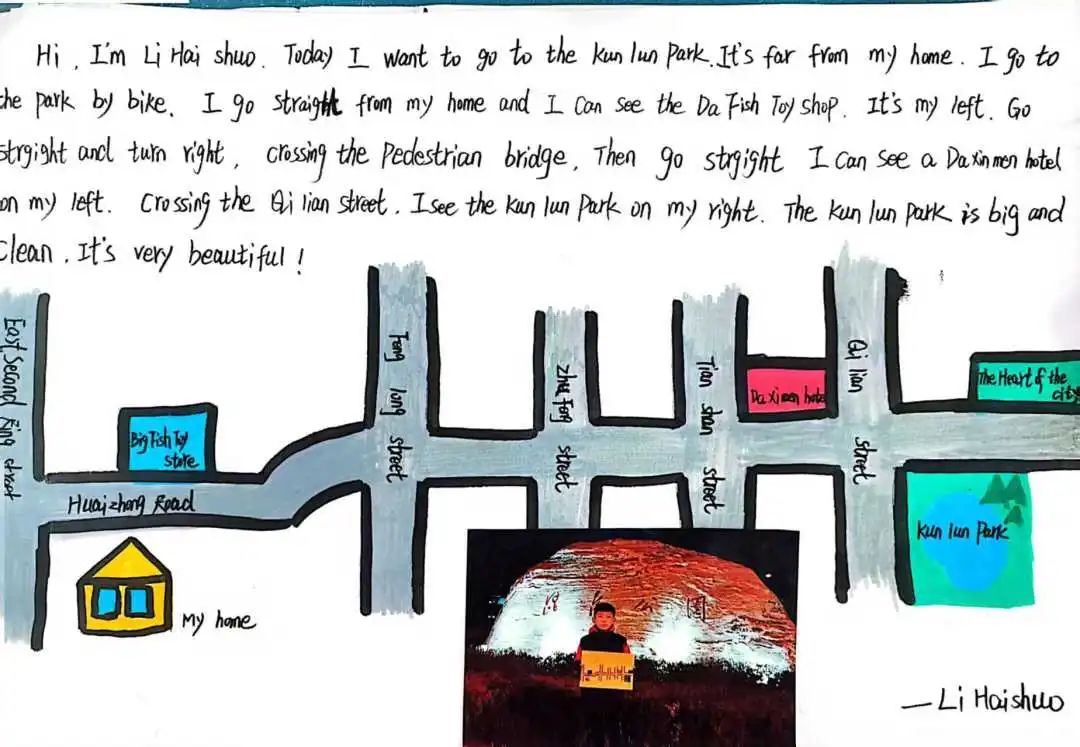 Hi, I'm Li Hai shuo. Today I want to go to the Kun lun Park. It's far from my home. I go to
the park by bike. I go straight from my home and I Can see the Da Fish Toy shop. It's my left. Go
strgight and turn right, crossing the Pedestrian bridge, Then go strgight I can see a Daxinmen hotel
on my left. Crossing the Qi lian street. I see the Kun lun Park on my right. The Kun lun park is big and
Clean. It's very beautiful!
East Second Ring street
Big Fish Toy
store
Huaizhong Road
My home
Feng long street
Zhu Feng street
Tian shan street
Da ximen hotel
Qi lian street
The Heart of the
city
Kun lun Park
—Li Haishuo